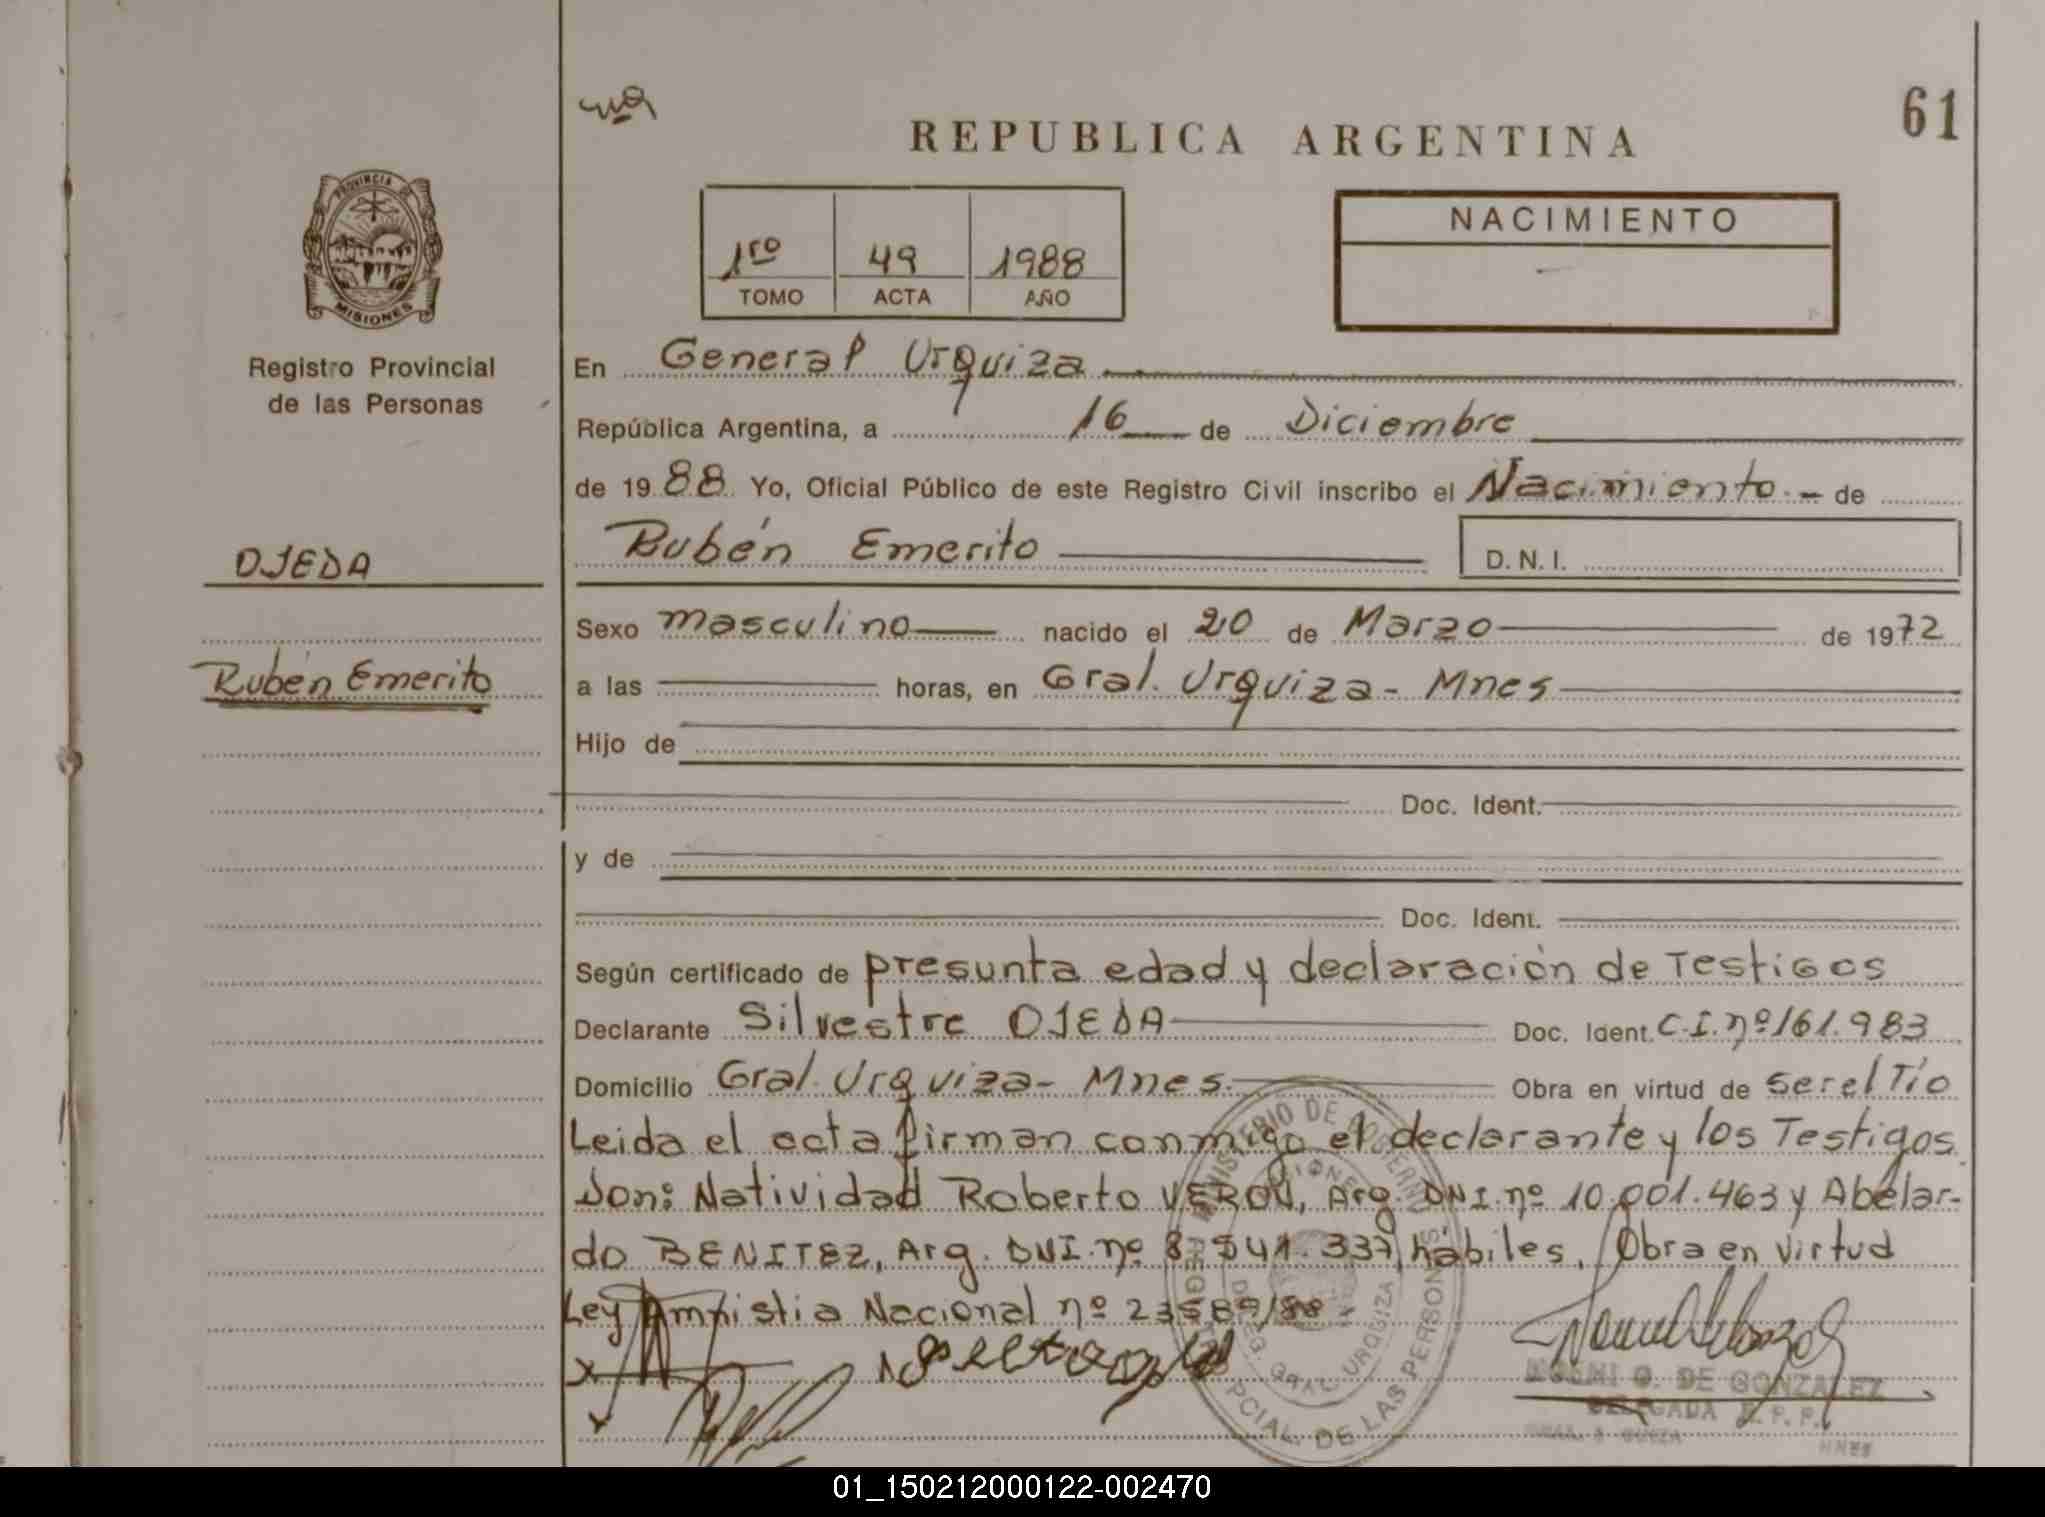 61
REPUBLICA ARGENTINA
PROVINCIA DE
MISIONES
Registro Provincial
de las Personas
1ro 49 1988
TOMO ACTA AÑO
NACIMIENTO
En General Urquiza
República Argentina, a 16 de Diciembre
de 1988 Yo, Oficial Público de este Registro Civil inscribo el Nacimiento.- de
Rubén Emerito D.N.I.
OJEDA
Rubén Emerito
Sexo masculino nacido el 20 de Marzo de 1972
a las horas, en Gral. Urquiza - Mnes
Hijo de
Doc. Ident.
y de
Doc. Ident.
Según certificado de presunta edad y declaración de Testigos
Declarante Silvestre OJEDA Doc. Ident. C.I. nº 161.983
Domicilio Gral. Urquiza - Mnes. Obra en virtud de ser el Tío
Leida el acta firman conmigo el declarante y los Testigos
Don: Natividad Roberto VERON, Arg. DNI. nº 10.001.463 y Abelar-
do BENITEZ, Arg. DNI. nº 8.541.337, hábiles. Obra en virtud
Ley Amnistia Nacional nº 23589/88
MINISTERIO DE GOBIERNO
MISIONES
DELEG. GRAL. URQUIZA
REGISTRO PCIAL. DE LAS PERSONAS
NOEMI O. DE GONZALEZ
DELEGADA R. P. P.
MNES
01_150212000122-002470